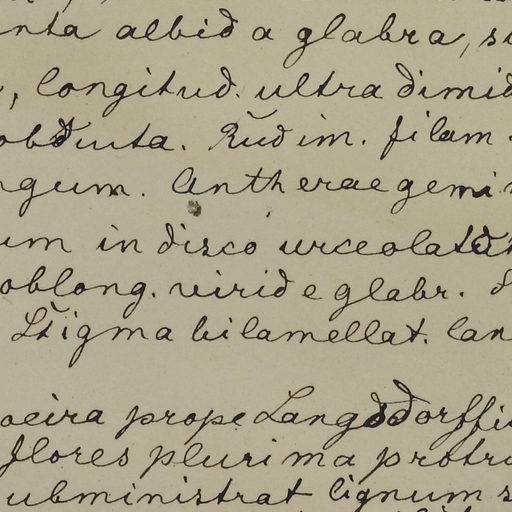 nta albida glabra, su
, longitud. ultra dimid
obtuta. Rudim. filam.
ngum. Antherae gemin
um in disco urceolat
oblong. viride glabr. S
Stigma bilamellat. lan
oeira prope Langsdorffi
flores plurima protra
ubministrat lignum s